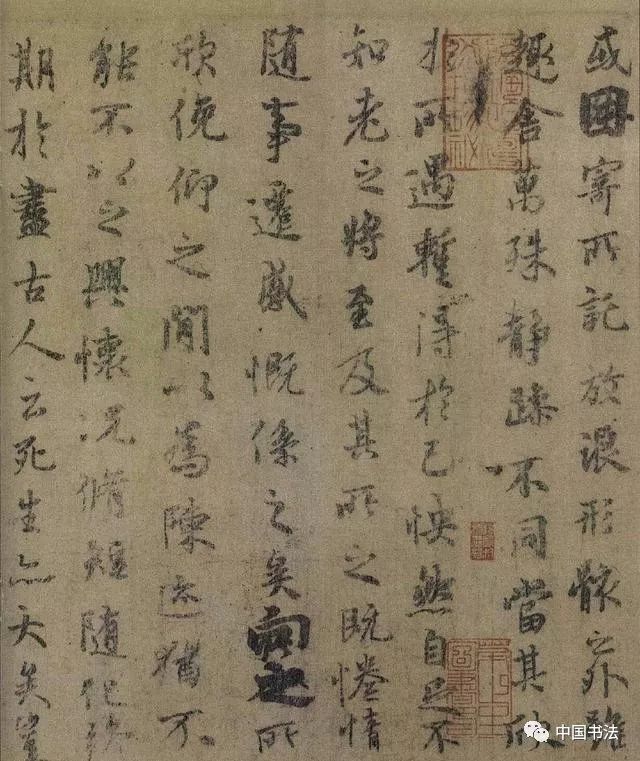 或因寄所託放浪形骸之外雖
趣舍萬殊静躁不同當其欣
於所遇暫得於己怏然自足不
知老之將至及其所之既惓情
随事遷感慨係之矣向之所
欣俛仰之閒以為陳迹猶不
能不以之興懷况脩短随化終
期於盡古人云死生亦大矣豈
中国书法